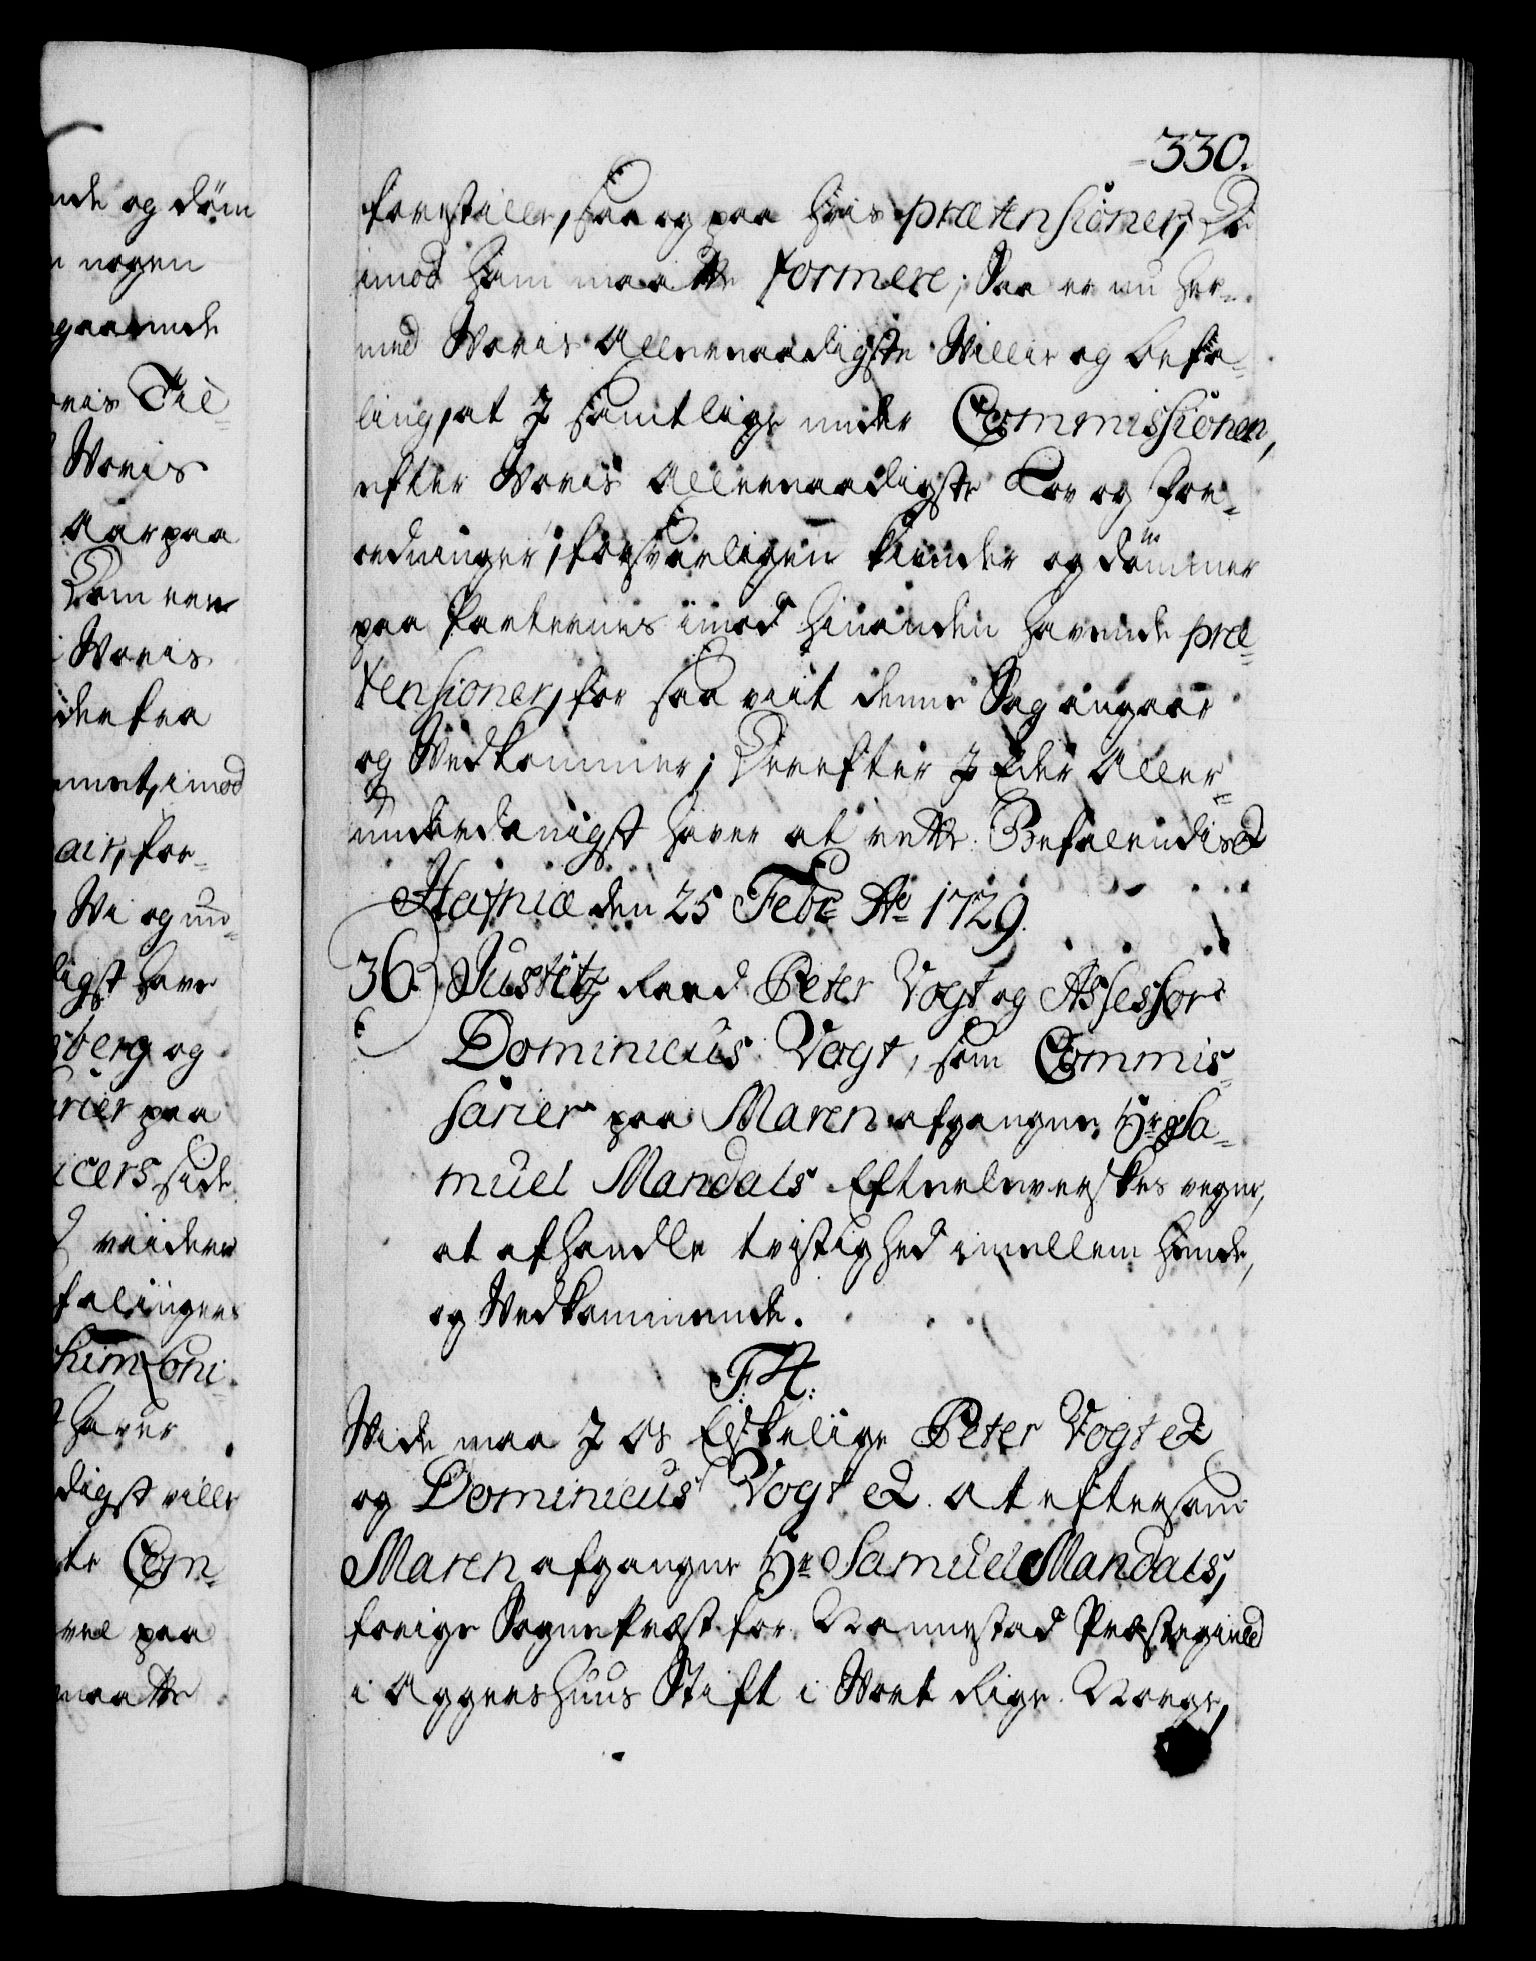 330.
forestiller, saa og paa hvis prætensioner, De
imod ham maatte formere; Saa er nu her-
med Voris Allernaadigste Villie og Befa-
ling, at I samtlige under Commissionen,
efter Voris Allernaadigste Lov og For-
ordninger, forsvarligen kiender og dömmer
paa Parternes imod hinanden havende præ-
tensioner, for saa viit denne Sag angaar
og Vedkommer; Derefter I Eder Aller-
underdanigst haver at rette. Befalendis &
Hafniæ den 25 Febr Ao 1729.
36.) Justitz Raad Peter Vogt og Assessor
Dominicus Vogt, som Commis-
sarier paa Maren afgangne Hr Sa-
muel Mandals Efterleverskes vegne,
at afhandle tvistighed imellem hende,
og Vedkommende.
F. 4.
Vide maa I Os Elskelige Peter Vogt &
og Dominicus Vogt &. at eftersom
Maren afgangne Hr Samuel Mandals,
forige Sogneprest for Nannestad Præstegield
i Aggershuus Stift i Vort Rige Norge,
nde og döm
n nogen
gaaende
oris Til-
Voris
Aar paa
Dom een
i Voris
der fra
imod
air, for-
Vi og un-
ligst have
sberg og
arier paa
icers side
viidere
falinger
him Coni-
haver
digst ville
te Com-
vel paa
maatte